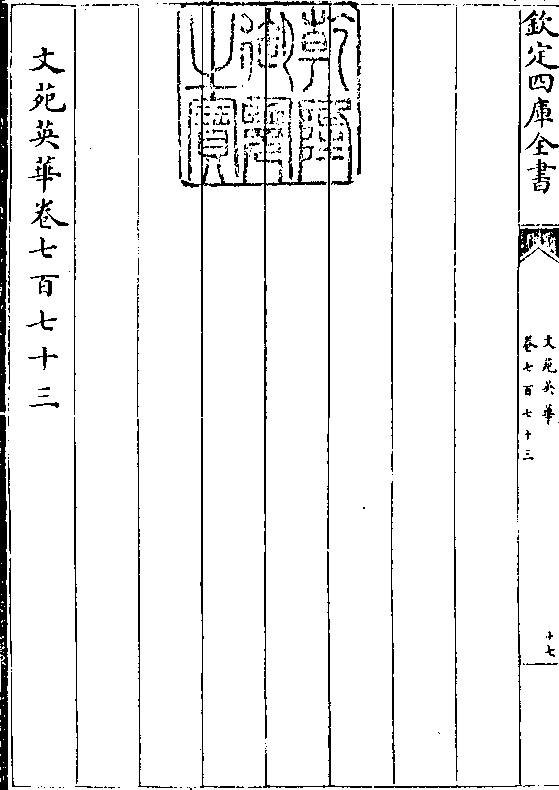 欽定四庫全書
文苑英華
卷七百七十三
十七
乾隆御覽之寶
文苑英華卷七百七十三